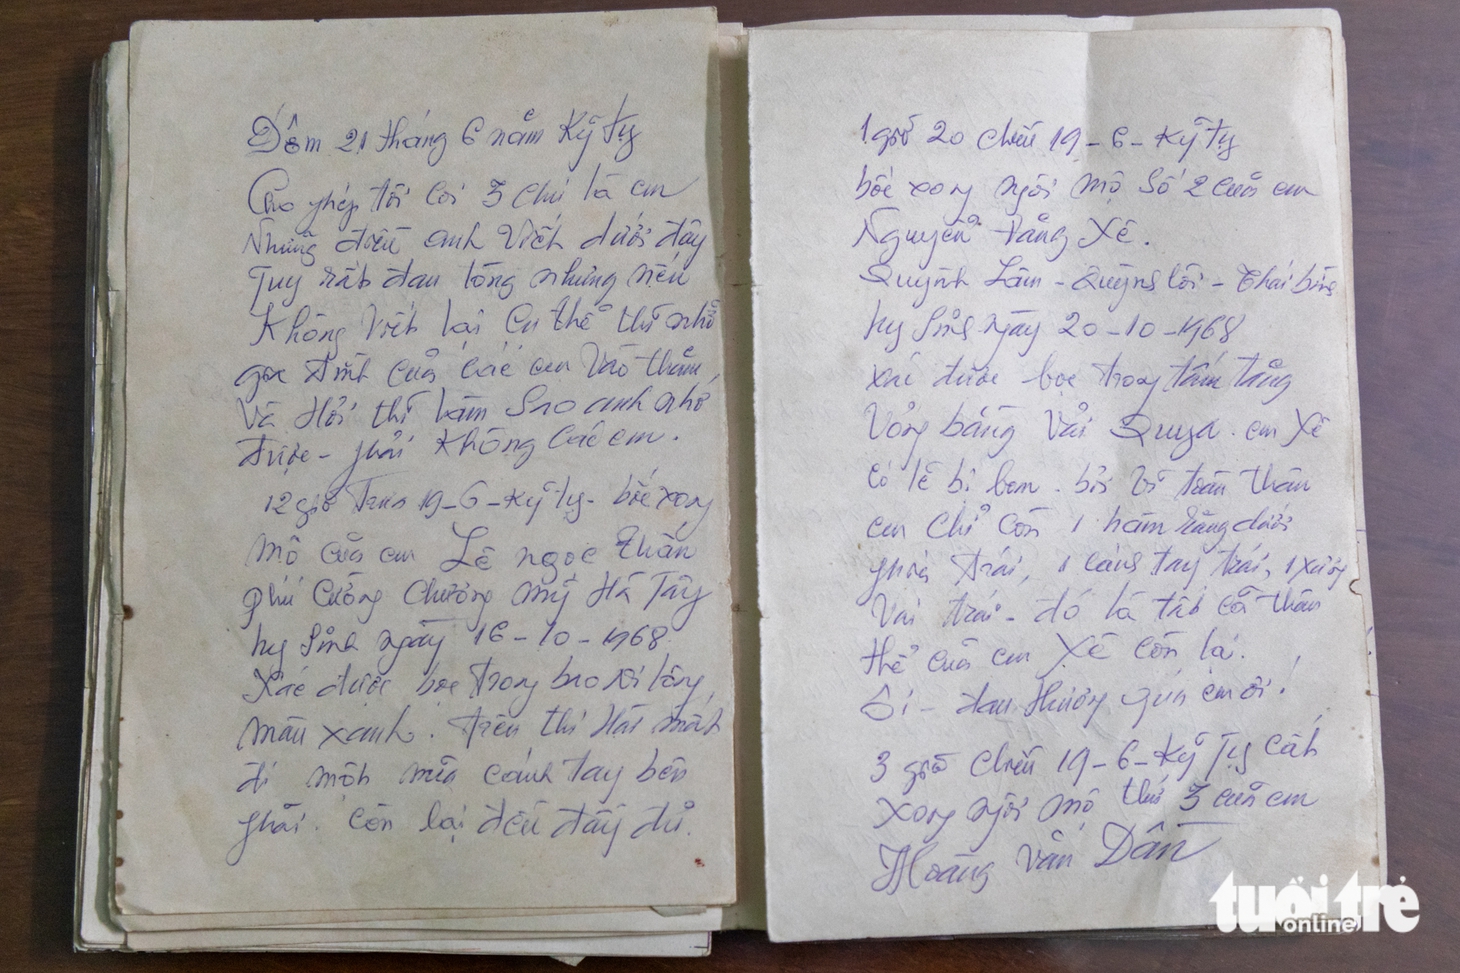 Đêm 21 tháng 6 năm Kỹ Tỵ
Cho phép tôi coi 3 chú là em
Những điều anh viết dưới đây
Tuy rất đau lòng nhưng nếu
Không viết lại cụ thể thì nhỡ
gia đình của các em vào thăm,
và hỏi thì làm sao anh nhớ
được - phải không các em.
12 giờ trưa 19-6-Kỹ Tỵ- bốc xong
mộ của em Lê Ngọc Thân
Phú Cường Chương Mỹ Hà Tây
hy sinh ngày 16-10-1968
Xác được bọc trong bao ni lông,
màu xanh. trên thi hài mất
đi một nửa cánh tay bên
phải. còn lại đều đầy đủ.
1 giờ 20 chiều 19-6-Kỹ Tỵ
bốc xong ngôi mộ số 2 của em
Nguyễn Đăng Xê.
Quỳnh Lâm - Quỳnh Côi - Thái bình
hy sinh ngày 20-10-1968
xác được bọc trong tấm tăng
Võng bằng vải em Xê
có lẽ bị bom. bởi vì toàn thân
em chỉ còn 1 hàm răng dưới
phía trái, 1 cánh tay trái, 1 xương
Vai trái - đó là tất cả thân
thể của em Xê còn lại.
Ôi - đau thương quá em ơi!
3 giờ chiều 19-6-Kỹ Tỵ cất
xong ngôi mộ thứ 3 của em
Hoàng Văn Dần
tuổi trẻ
online